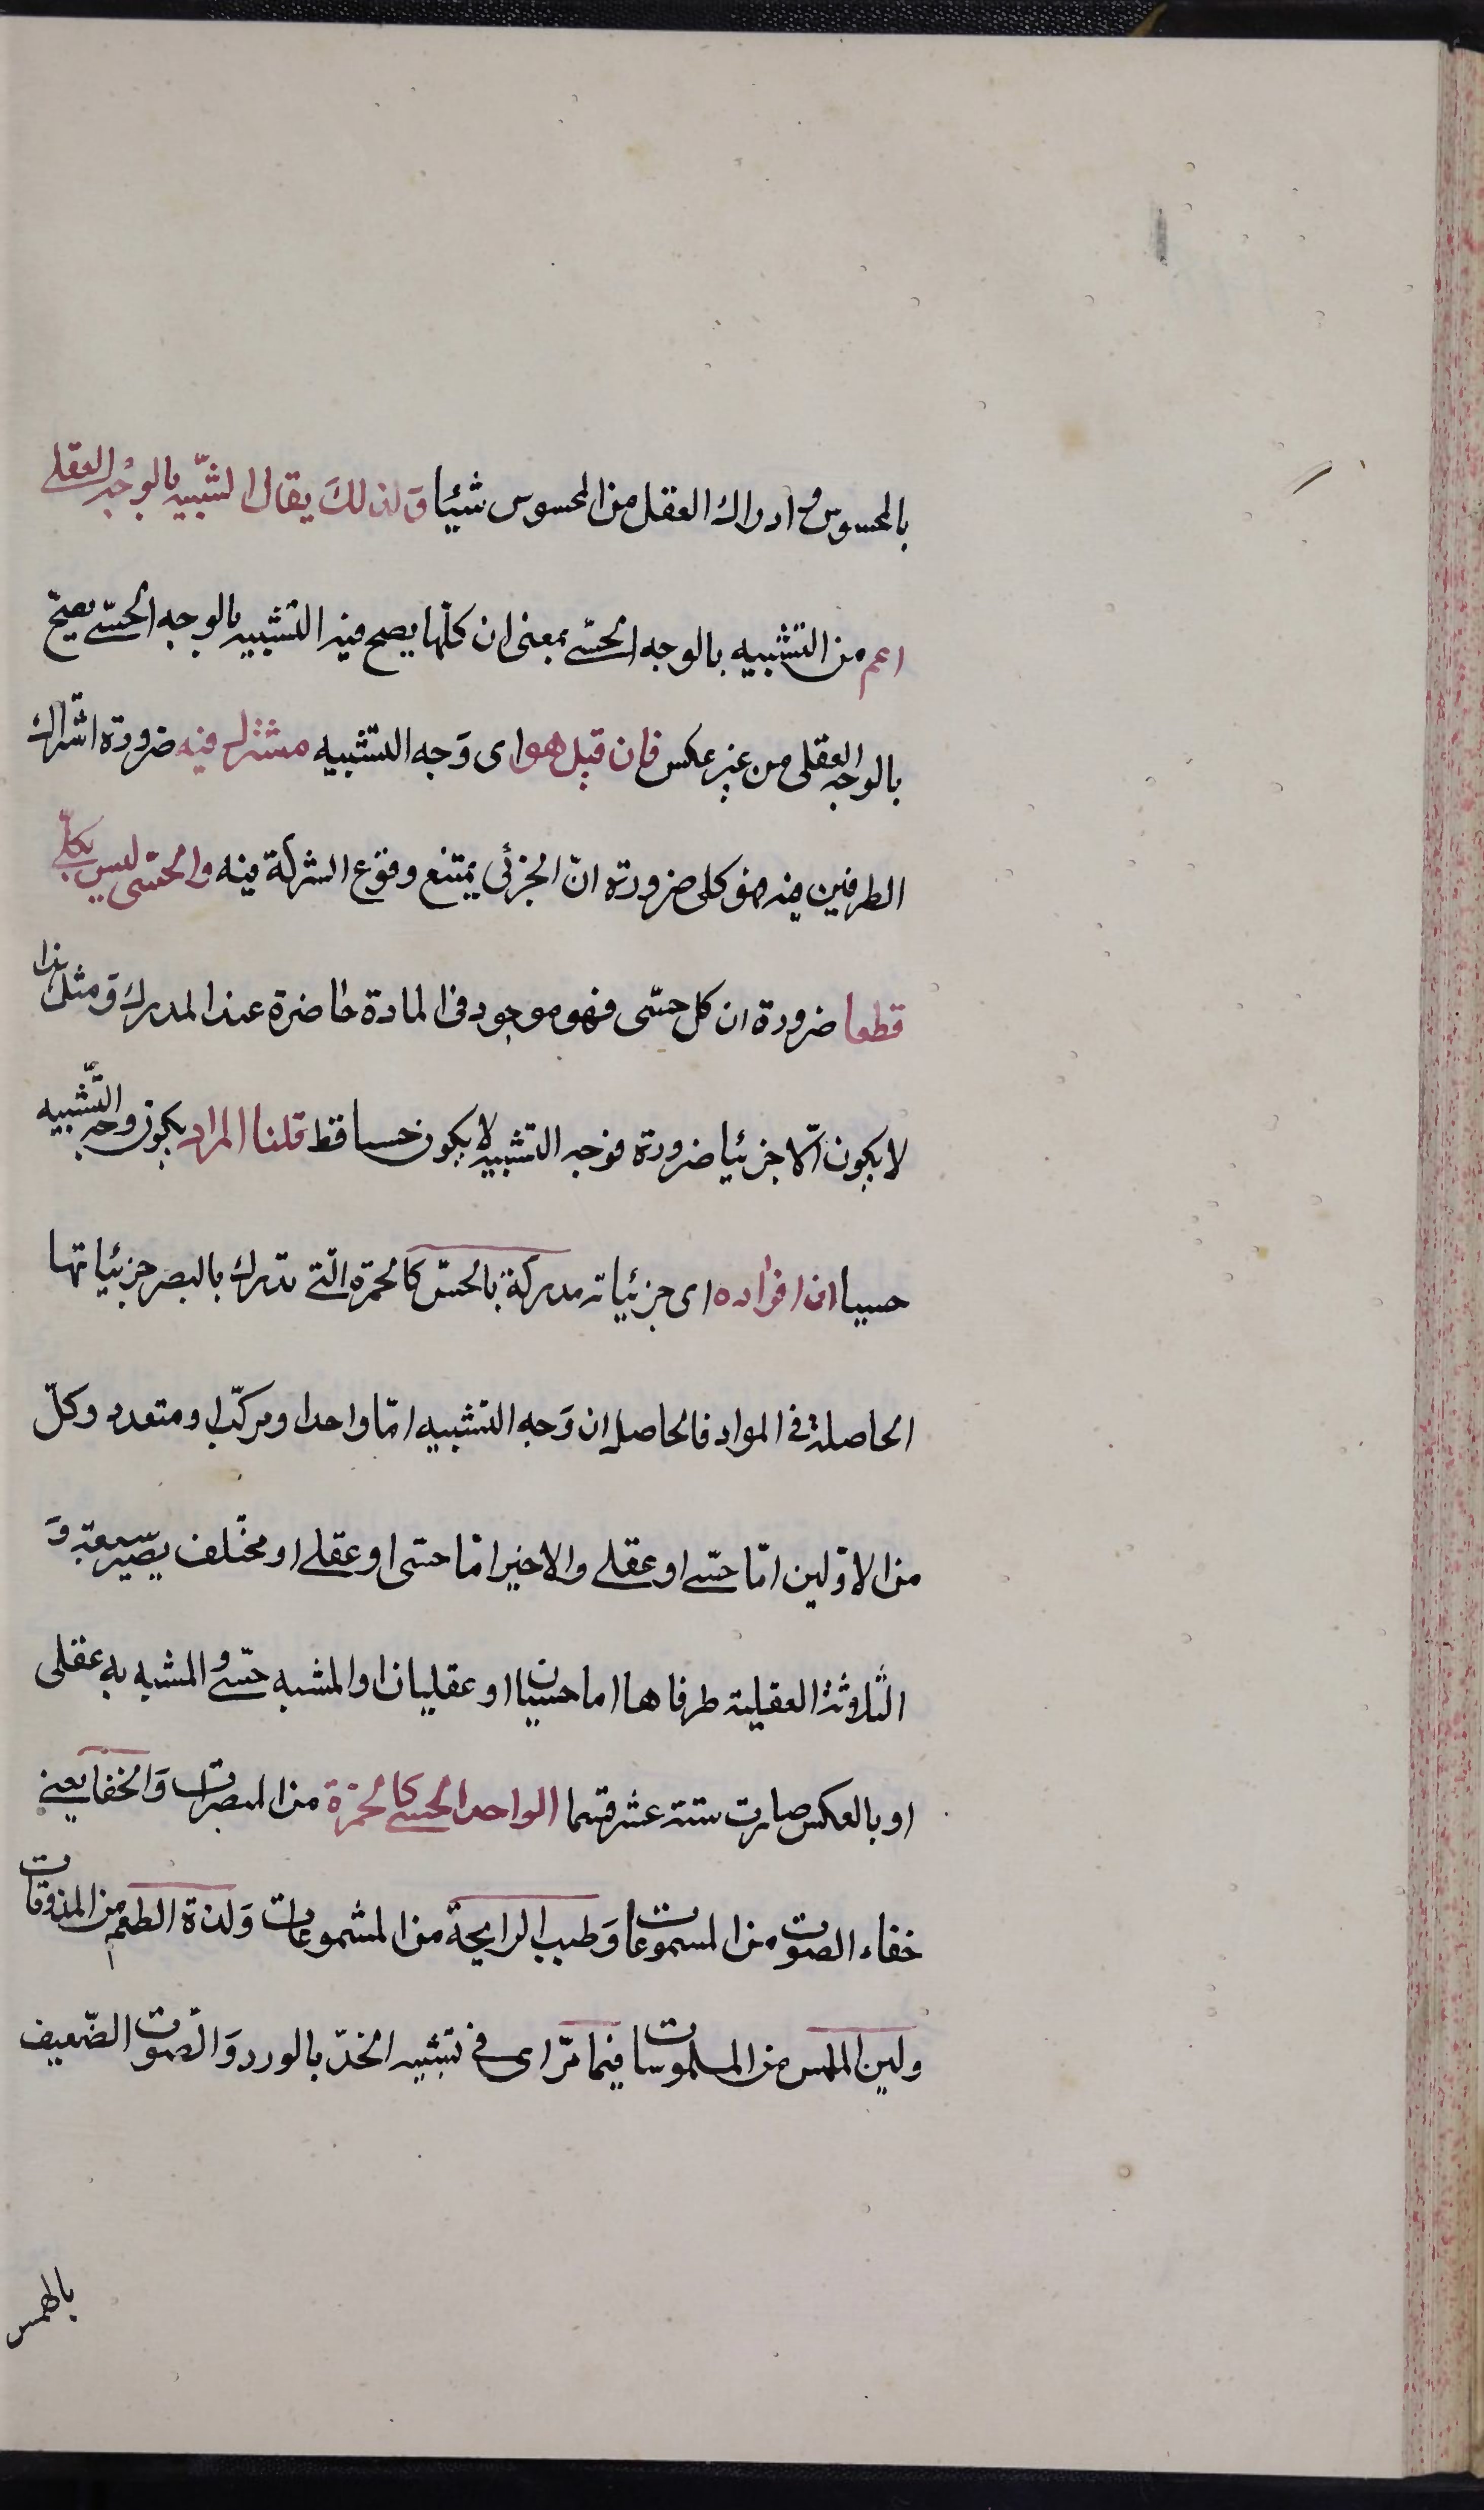 بالمحسوس و ادراك العقل من المحسوس شيئا وَلذلكَ يقال التشبّيه بالوجه العقلى
اعم من التشبيه بالوجه الحسّى بمعنى ان كلّما يصح فيه التشبيه بالوجه الحسّى يصحّ
بالوجه العقلى من غير عكس فان قيل هو اى وَجه التشبيه مشترك فيه ضرورة اشتراك
الطرفين فيه فهو كلى ضرورة انّ الجزئى يمتنع وقوع الشركة فيه والحسّى ليس بكلّى
قطعا ضرورة ان كل حسّى فهو موجود فى المادة حاضرة عند المدرك وَمثل هذا
لا يكون الّا جزئيا ضرورة فوجه التشبيه لا يكون حسيا قط قلنا المراد بكون وجه التّشبيه
حسيا ان افراده اى جزئياته مدركة بالحسّ كالحمرة الّتى تدرك بالبصر جزئياتها
الحاصلة فى المواد فالحاصل ان وَجه التشبيه امّا واحدا ومركّب او متعدد وكلّ
من الاوّلين امّا حسّى او عقلى والاخير امّا حسّى او عقلى او مختلف يصير سبعة وَ
الثلاثة العقلية طرفاها اما حسيان او عقليان او المشبه حسّى و المشبه به عقلى
او بالعكس صارت ستة عشر قسما الواحد الحسى كالحمرة من المبصرات وَالخفا يعنى
خفاء الصوت من المسموعات وَطيب الرايحة من المشموعات وَلذة الطعم من المذوقات
ولين الملمس من الملموسات فيما مرّ اى فى تشبيه الخدّ بالورد وَالصّوت الضّعيف
بالهمس